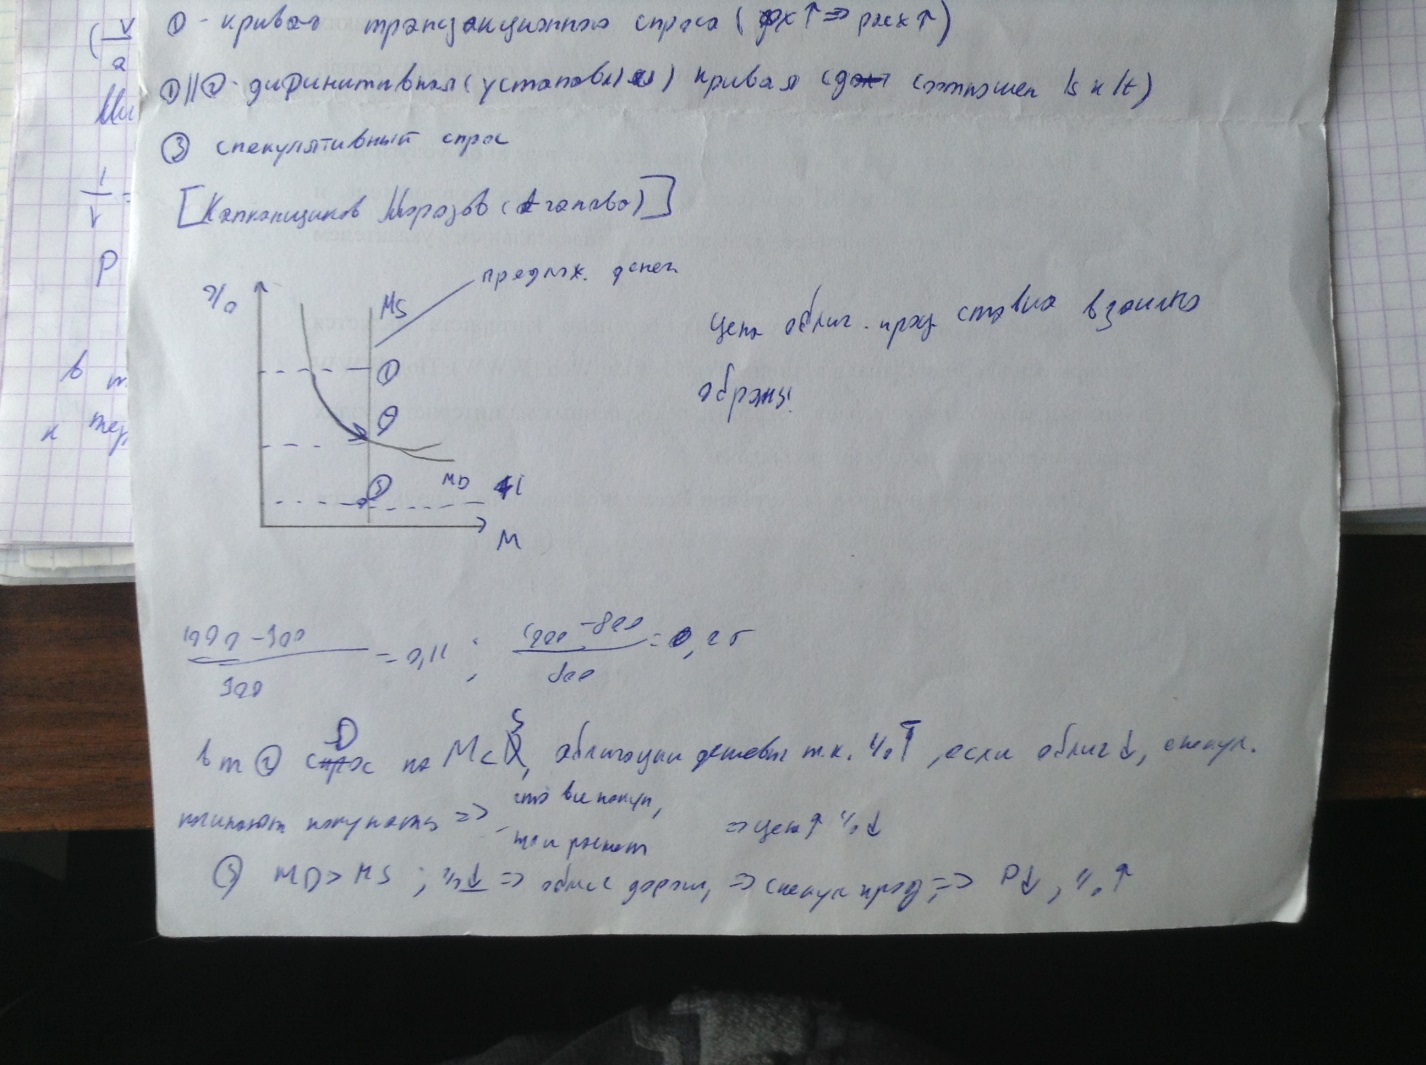 ① - кривая транзакционного спроса (дох↑ => расх↑)
①||② - дифинитивная (установл) кривая (соотношен
③ спекулятивный спрос
[Капканщиков Морозов (Агапова)]
% MS предлож. денег
Цена облиг. проц ставка взаимно
обратны!
①
②
③
MD
M
(1000 - 900) / 900 = 0,11 ; (1000 - 800) / 800 = 0,25
в т ① спрос на M < S, облигации дешевы т.к. %↑, если облиг↓, спекул.
начинают покупать => => цен↑ %↓
③ MD > MS ; %↓ => облиг дорож, => спекул прод, => P↓, %↑
(V
a
1
V =
P
в т.
к тер